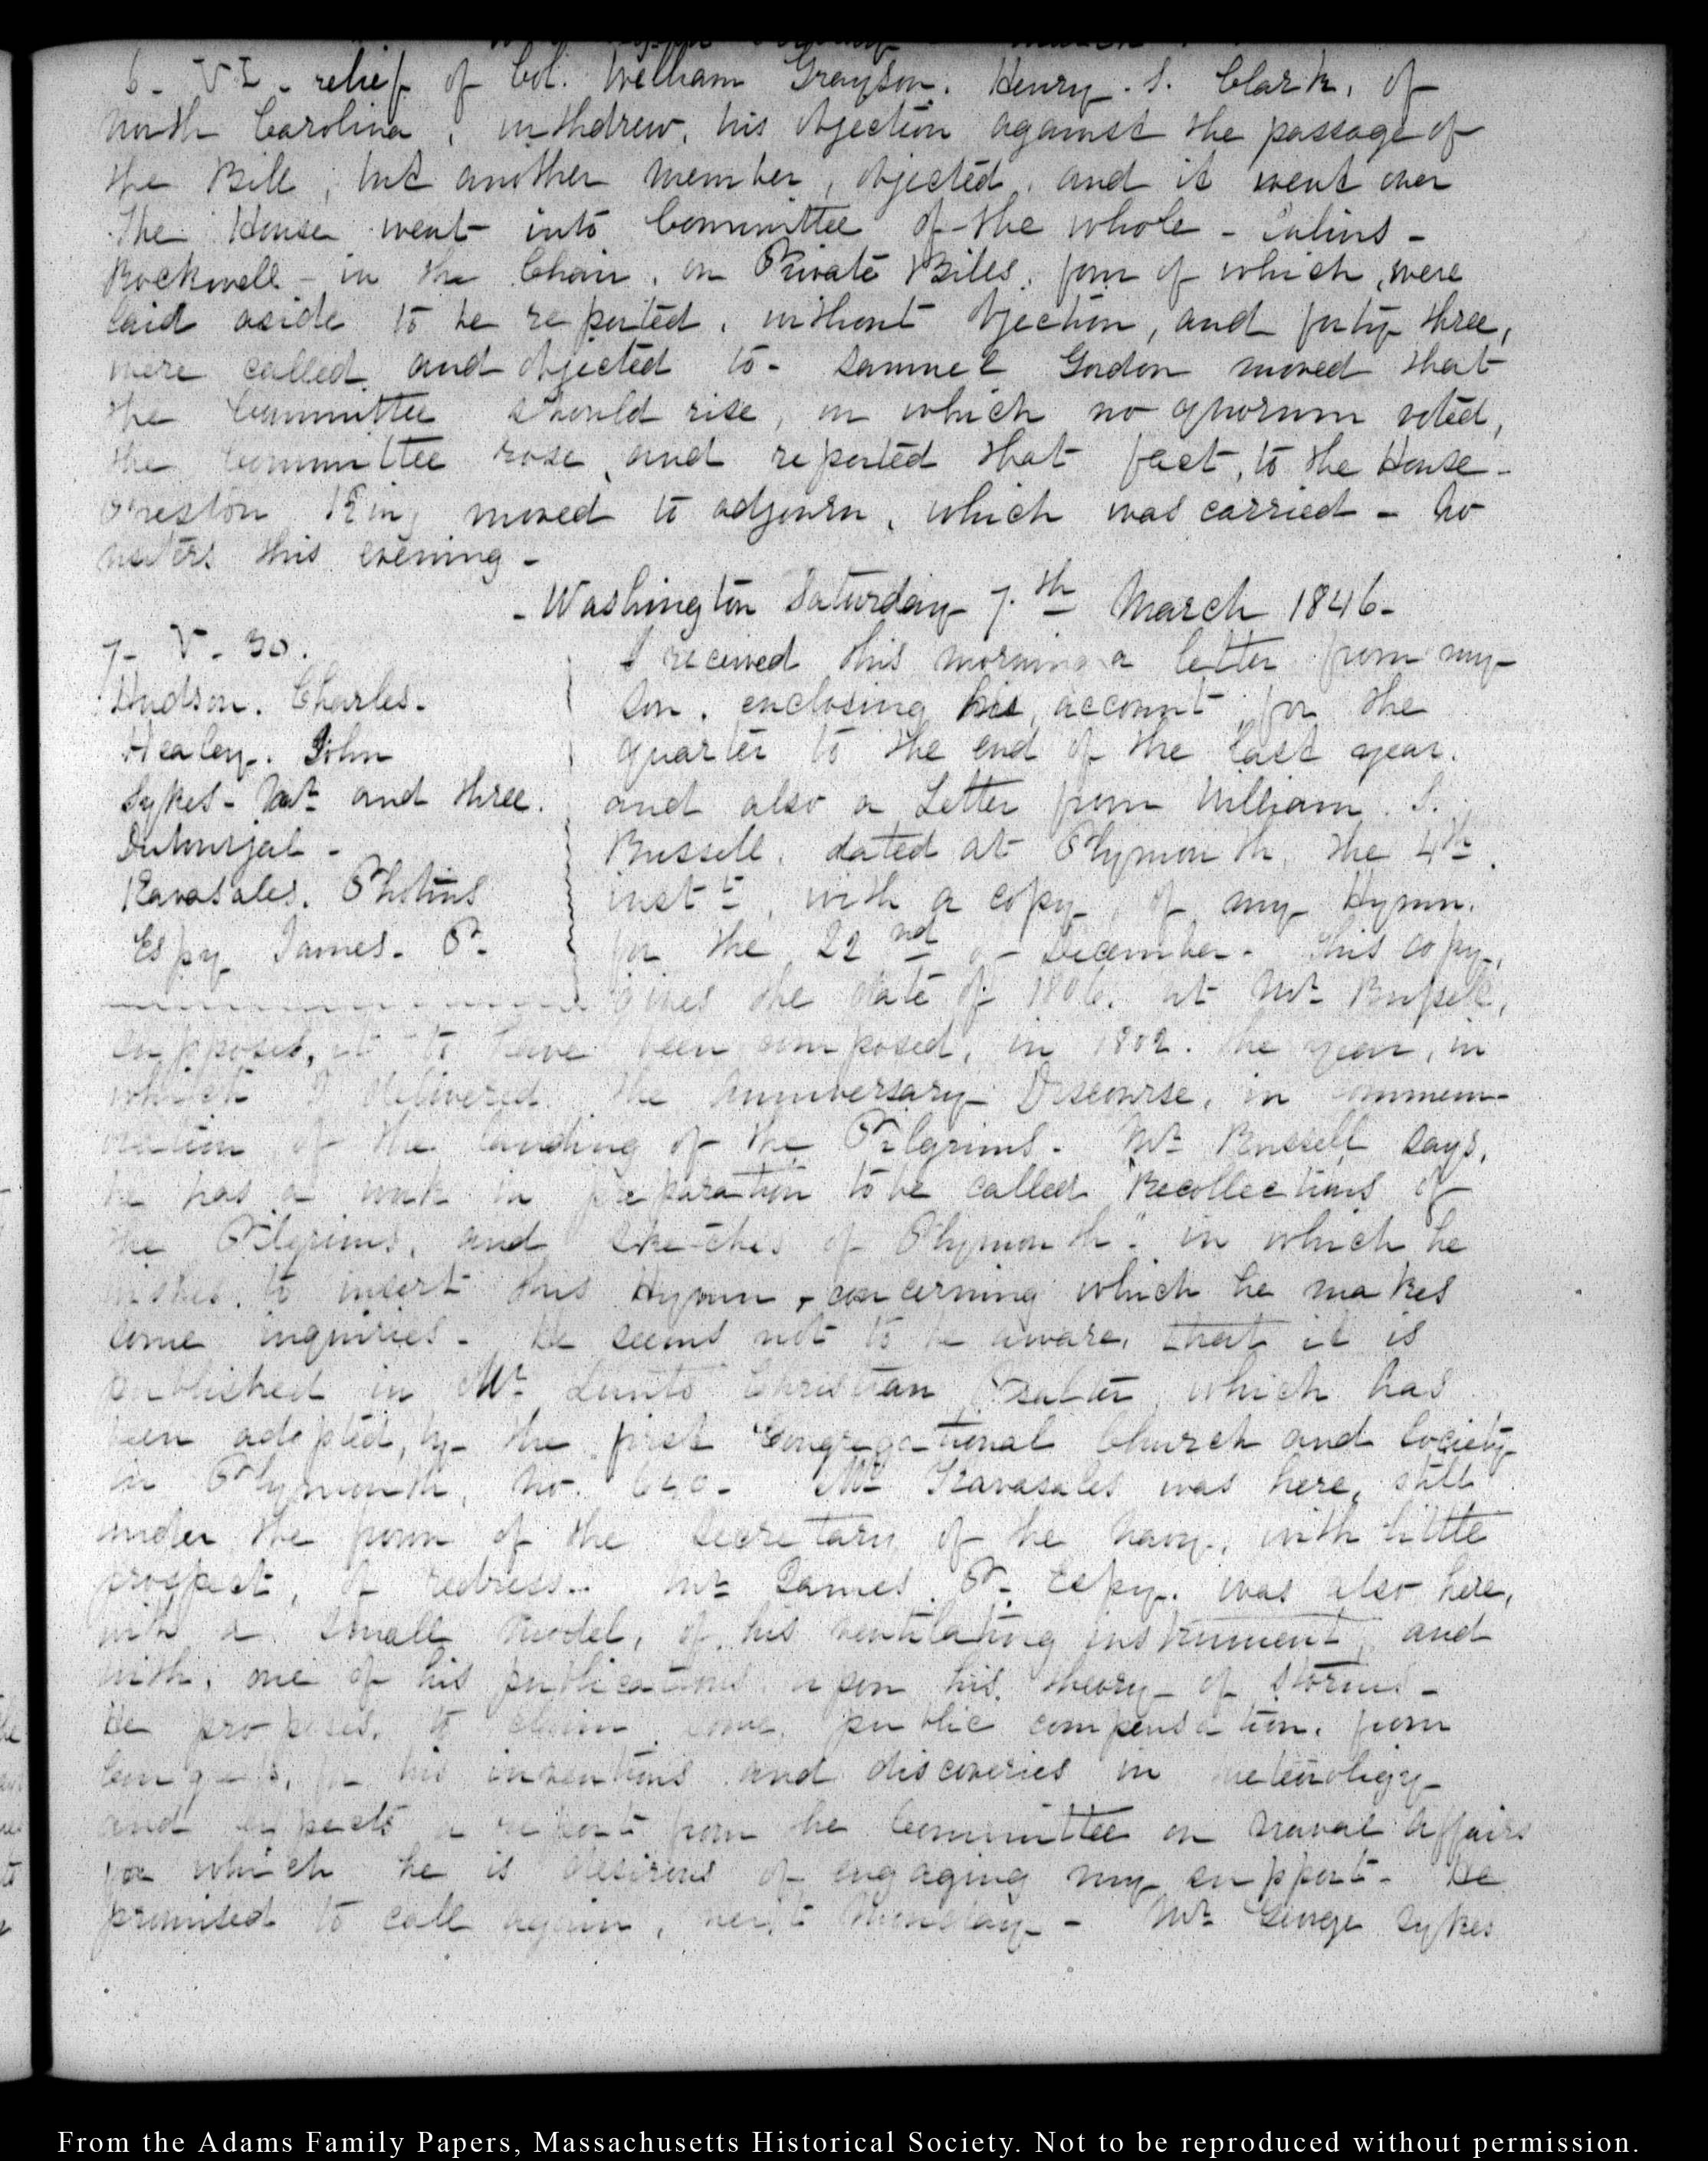 6- VI- relief of Col. William Grayson. Henry. S. Clark, of
North Carolina, withdrew, his objection against the passage of
the Bill, but another member, objected, and it went over
The House went into Committee of the whole - Julius -
Rockwell - in the Chair, on Private Bills, four of which, were
laid aside to be reported, without objection, and forty three,
were called and objected to - Samuel Gordon moved that
the Committee should rise, on which no quorum voted,
the Committee rose, and reported that fact, to the House -
Preston King moved to adjourn, which was carried - No
visiters this evening -
- Washington Saturday 7.th March 1846 -
7- V- 30.
Hudson. Charles.
Healey. John
Sykes - Mr and three.
Kavasales. Photius
Espy James. P.
I received this morning a letter from my
Son, enclosing his account for the
quarter to the end of the last year.
and also a Letter from William. S.
Russell, dated at Plymouth, the 4th.
instt, with a copy, of my Hymn.
for the 22nd of December. This copy,
gives the date of 1806. but Mr Russell,
supposes, it to have been composed, in 1802. the year, in
which I delivered the Anniversary Discourse, in commem-
oration of the landing of the Pilgrims. Mr Russell says,
he has a work in preparation to be called "Recollections of
the Pilgrims, and Sketches of Plymouth" in which he
wishes, to insert this Hymn, concerning which he makes
some inquiries - He seems not to be aware, that it is
published in Mr Lunt's Christian Psalter which has
been adopted, by the first Congregational Church and Society
in Plymouth, No. Mr Kavasales was here, still
under the frown of the Secretary of the Navy, with little
prospect, of redress. Mr James P. Espy. was also here,
with a small model, of his ventilating instrument, and
with, one of his publications upon his theory of storms -
He proposes, to claim some, public compensation, from
Congress, for his inventions and discoveries in meteorology
and expects a report from the Committee on Naval Affairs
for which he is desirous of engaging my support - He
promised to call again, next Monday - Mr George Sykes
From the Adams Family Papers, Massachusetts Historical Society. Not to be reproduced without permission.